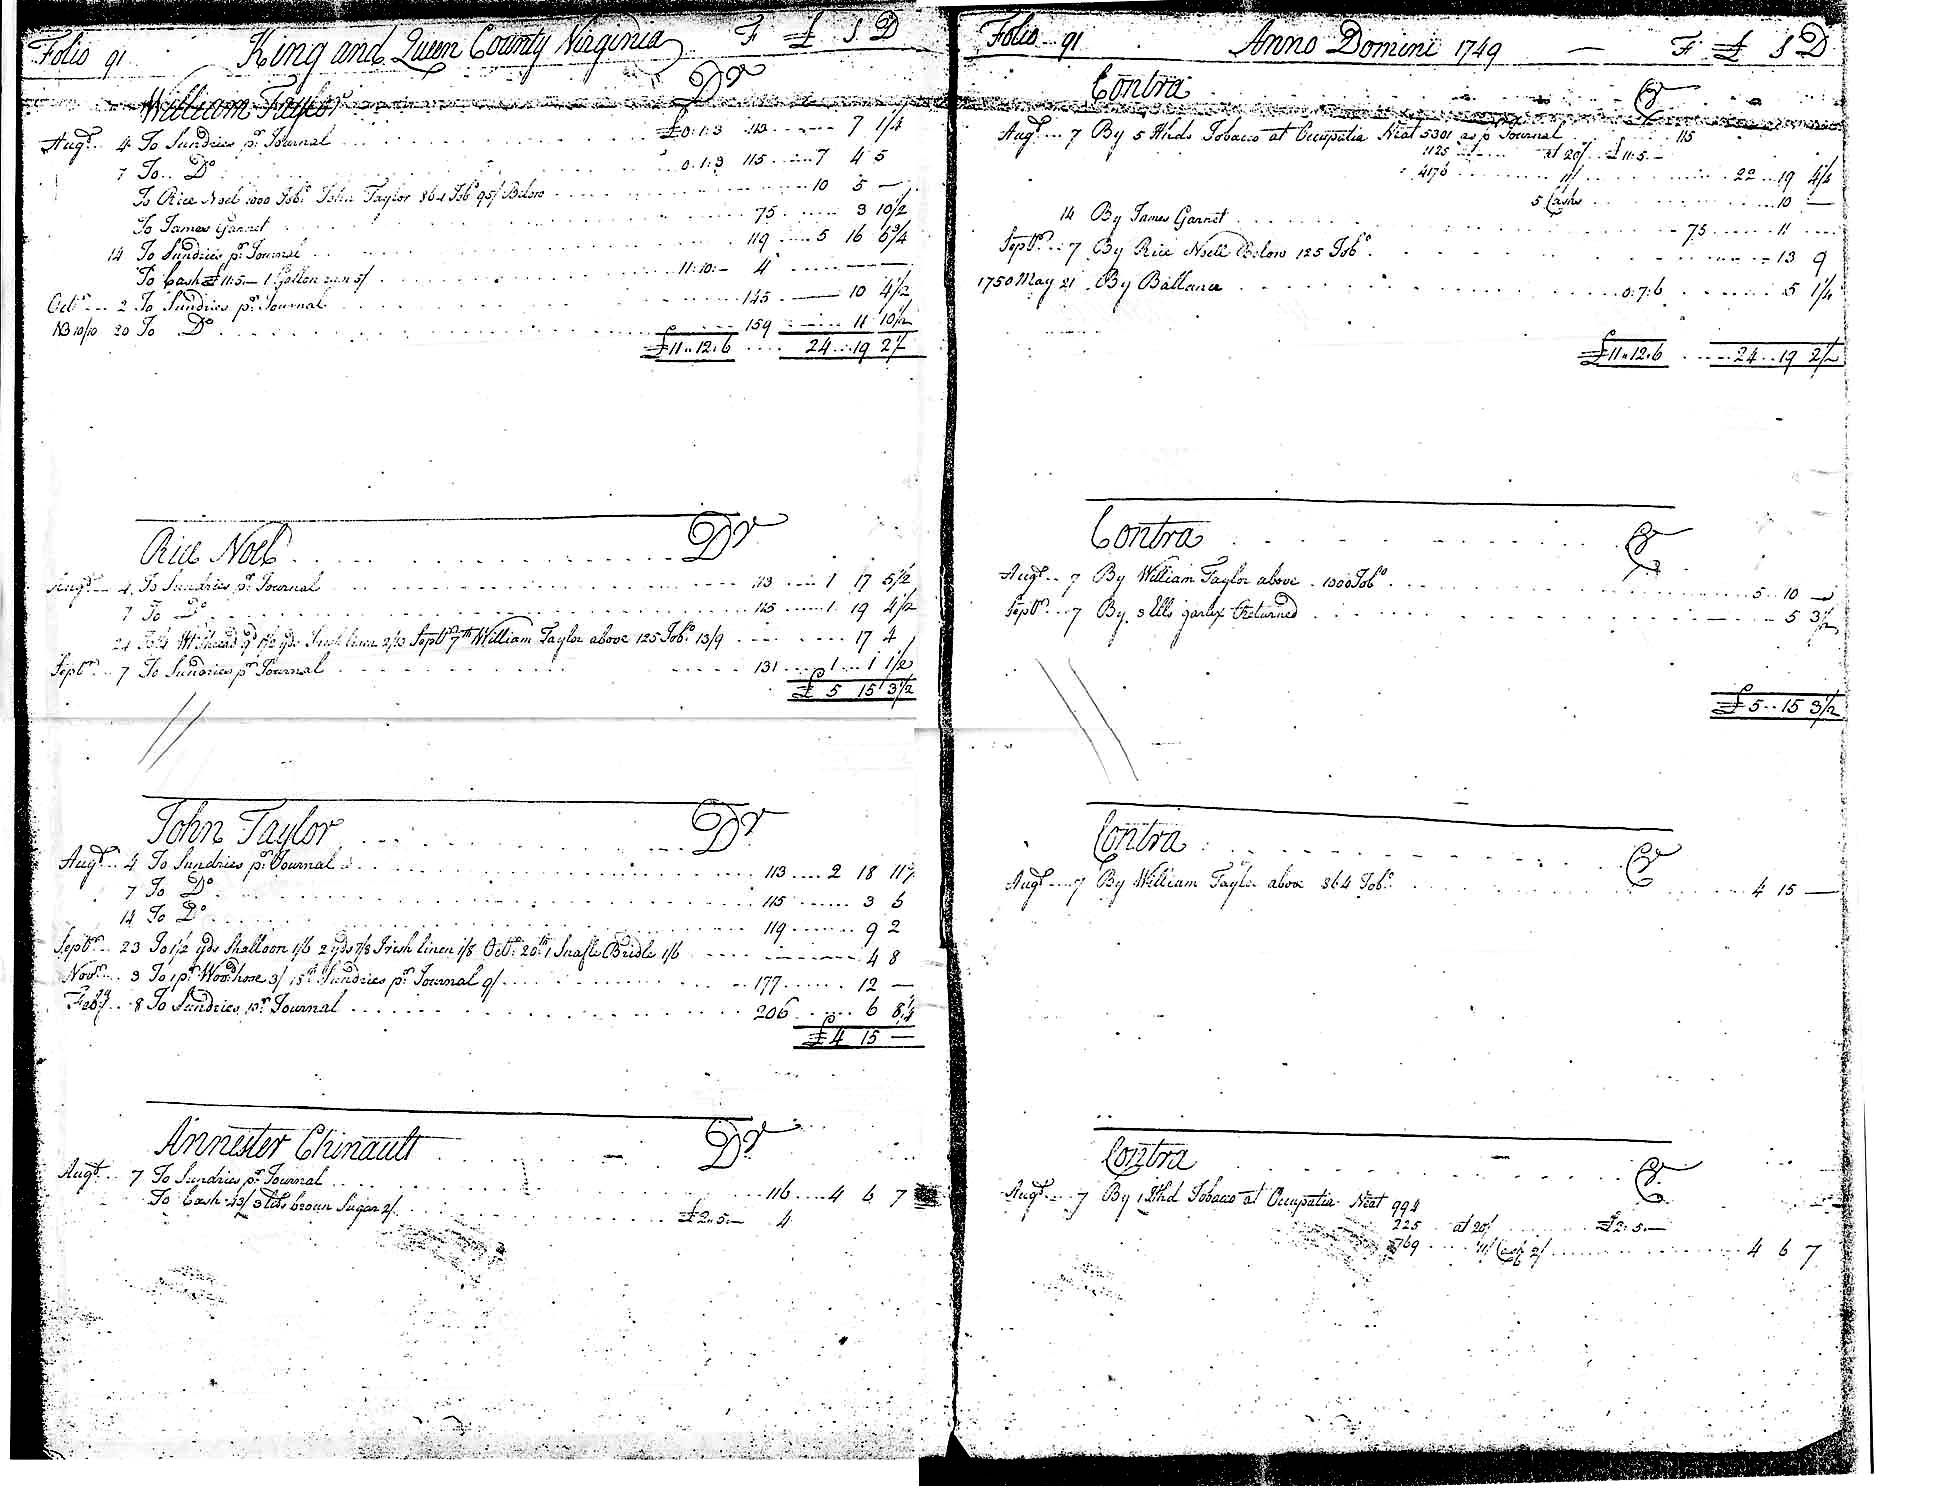 Folio 91 King and Queen County Virginia F £ S D
William Taylor Dr
Augt 4 To Sundries pr Journal £0:1:3 113 7 1/4
7 To Do 0:1:3 115 7 4 5
To Rice Noel 1000 Tobo John Taylor 864 Tobo 95/ Below 10 5 —
To James Garnet 75 3 10 1/2
14 To Sundries pr Journal 119 5 16 6 3/4
To Cash £11:5— 1 Gallon rum 5/ 11:10:— 4
Octr 2 To Sundries pr Journal 145 — 10 4 1/2
NB 10/10 20 To Do 159 11 10 1/2
£11..12.6 24 19 2 1/2
Rice Noel Dr
Augt 4 To Sundries pr Journal 113 1 17 5 1/2
7 To Do 115 1 19 4 1/2
yds Irish linen 2/3 Septr 7th William Taylor above 125 Tobo 13/9 17 4
Septr 7 To Sundries pr Journal 131 1 1 1/2
£ 5 15 3 1/2
John Taylor Dr
Augt 4 To Sundries pr Journal 113 2 18 11
7 To Do 115 3 6
14 To Do 119 9 2
Septr 23 To 1/2 yds Shalloon 1/6 2 yds 7/8 Irish linen 1/8 Octr 20th 1 Snafle Bridle 1/6 4 8
Novr 3 To 1 pr Wood hose 3/ 15th Sundries pr Journal 9/ 177 12 —
Feby 8 To Sundries pr Journal 206 6 8 1/4
£ 4 15 —
Annester Chinault Dr
Augt 7 To Sundries pr Journal 116 4 6 7
To Cash 43/ 3 lbs brown Sugar 2/ £2..5.— 4
Folio 91 Anno Domini 1749 — F £ S D
Contra Cr
Augt 7 By 5 Hhds Tobacco at Occupatia Neat 5301 as p Journal 115
1125 at 20/ £11:5.—
4176 11/ 22 19 4 1/2
5 Casks 10 —
14 By James Garnet 75 11
Septr 7 By Rice Noell Below 125 Tobo 13 9
1750 May 21 By Ballance 0:7:6 5 1/4
£11..12.6 24 19 2 1/2
Contra Cr
Augt 7 By William Taylor above 1000 Tobo 5 10 —
Septr 7 By 3 Ells garlix Returned 5 3 1/2
£ 5 15 3 1/2
Contra Cr
Augt 7 By William Taylor above 864 Tobo 4 15 —
Contra Cr
Augt 7 By 1 Hhd Tobacco at Occupatia Neat 994
225 at 20/ £2:5.—
769 11/ Cask 2/ 4 6 7